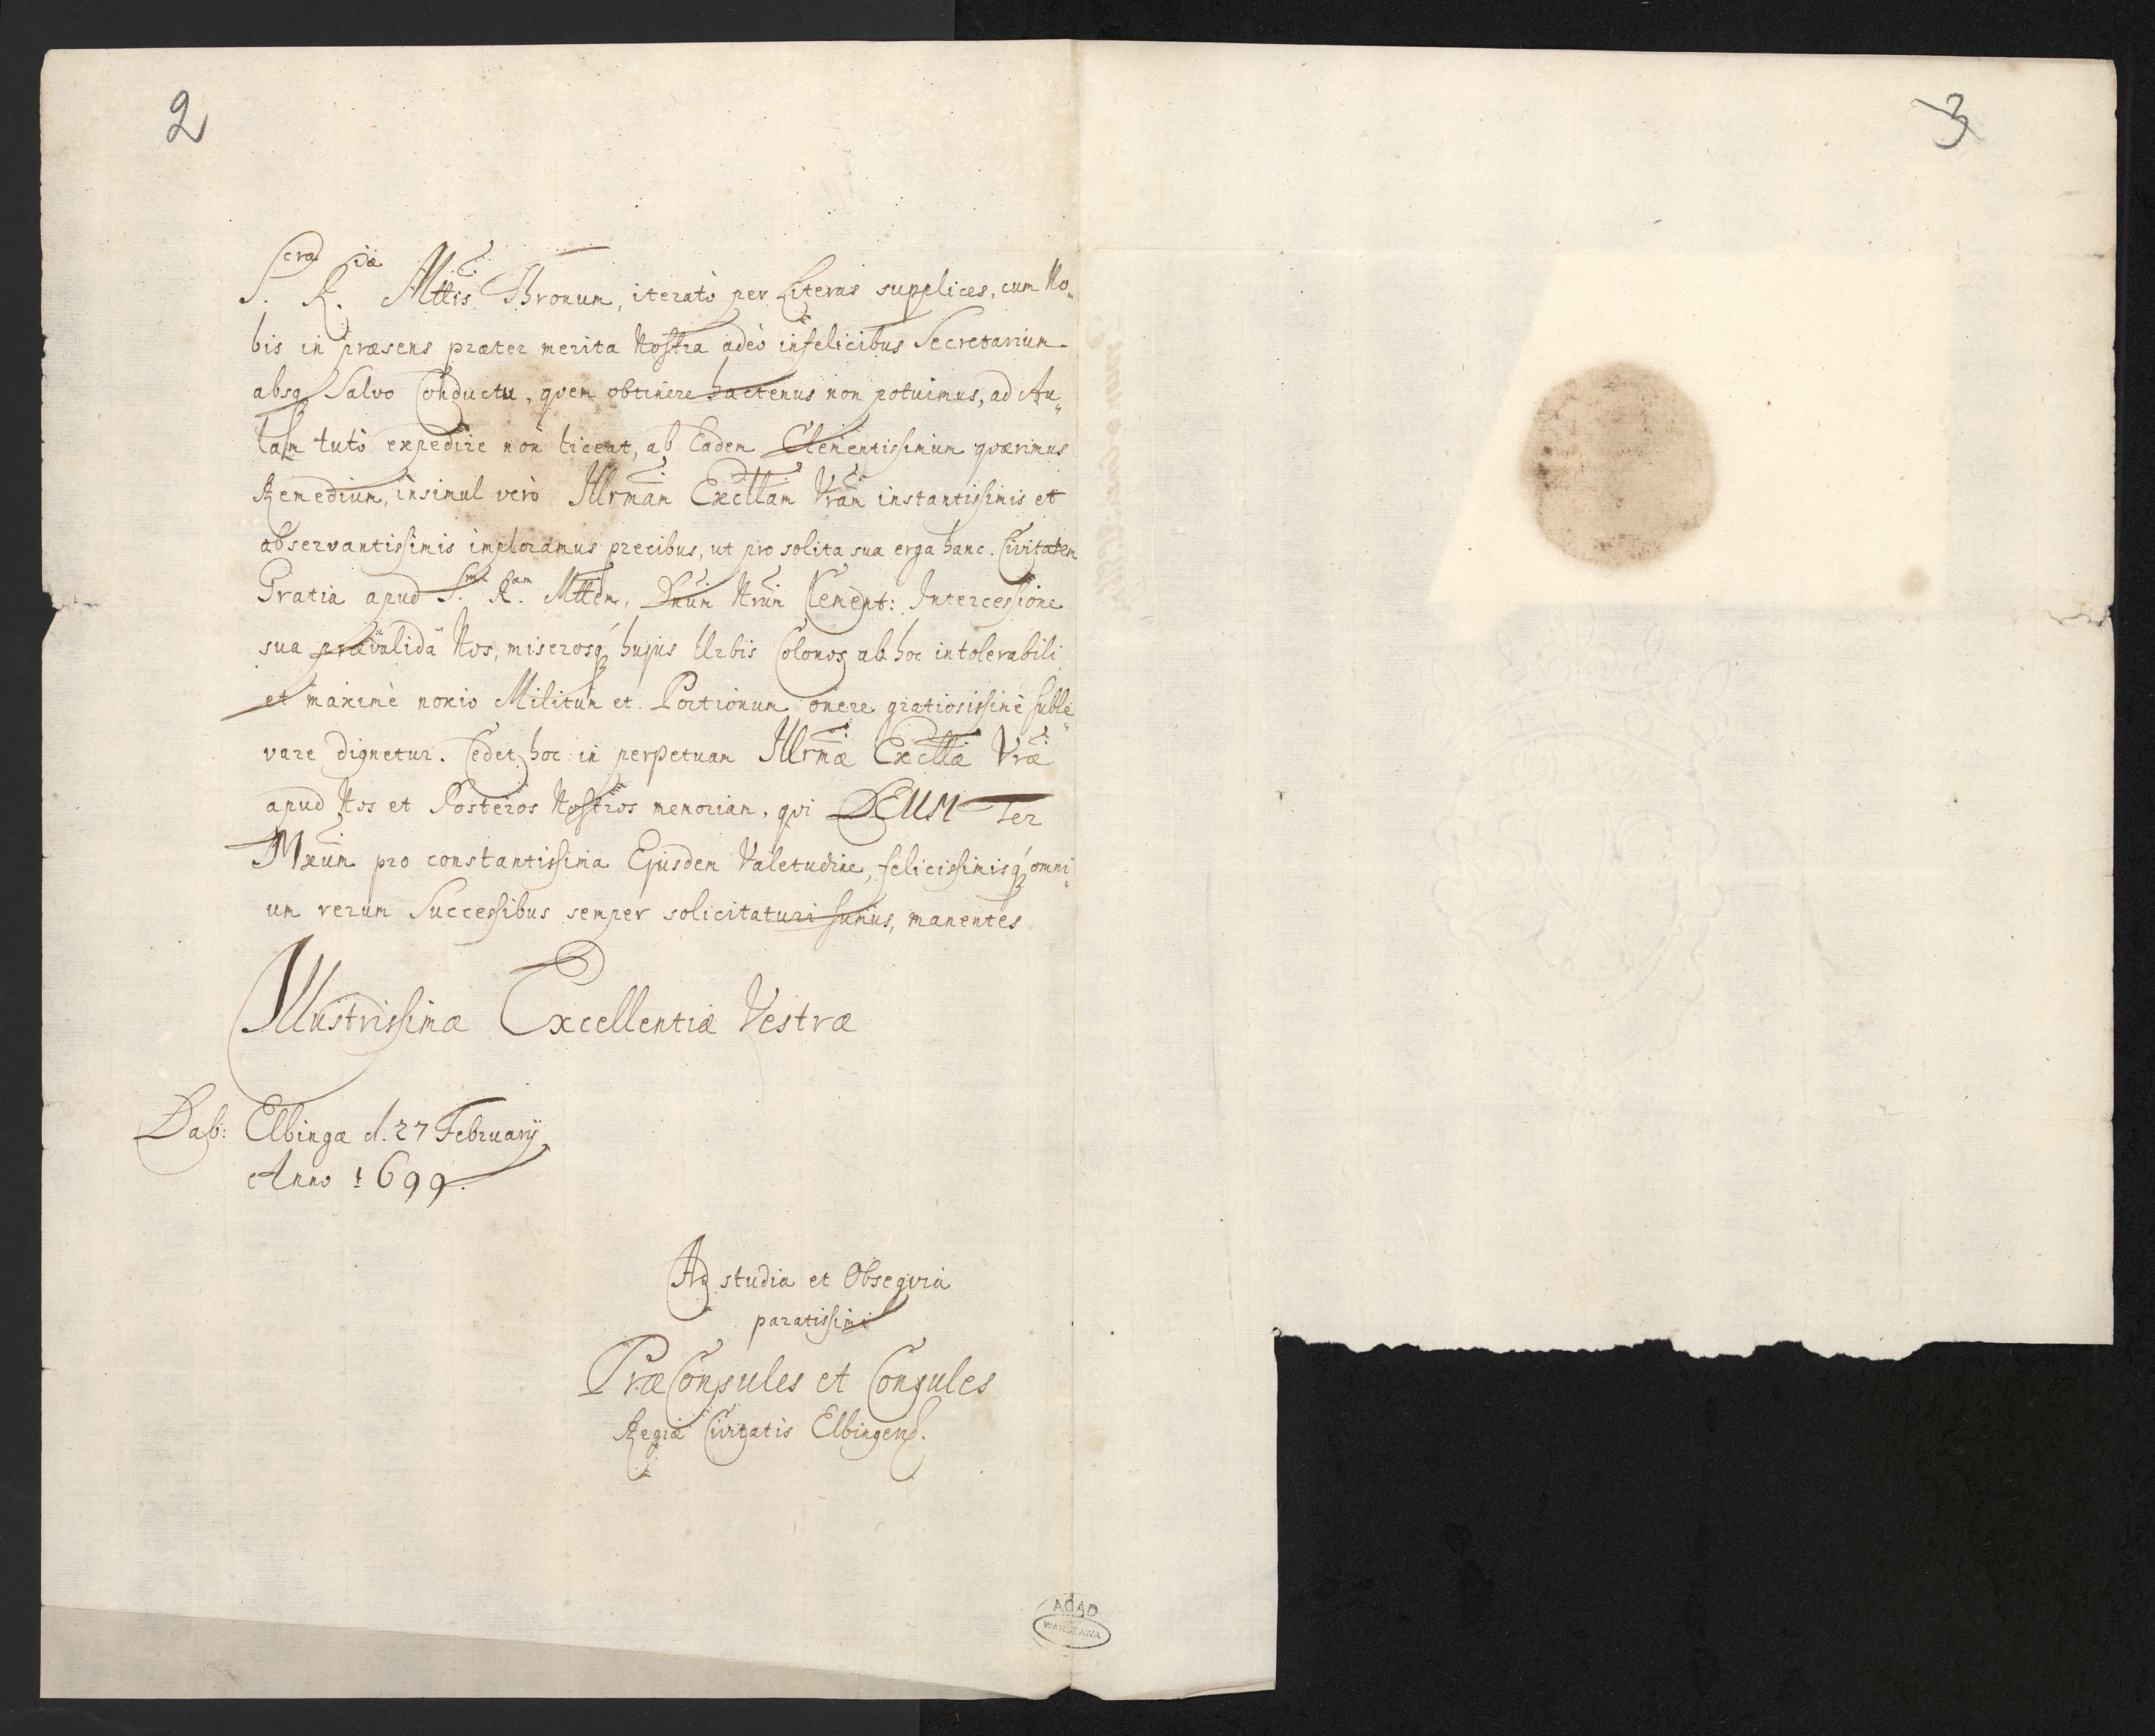 2
3
S.cræ R.iæ Mttis Thronum, iteratò per Literas supplices, cum No„
bis in præsens præter merita Nostra adeò infelicibus Secretarium
absq Salvo Conductu, qvem obtinere hactenus non potuimus, ad Au„
lam tutò expedire non liceat, ab Eadem Clementissimum qværimus
Remedium, insimul verò Illrmam Excllam Vram instantissimis et
observantissimis imploramus precibus, ut pro solita sua erga hanc Civitatem
Gratia apud S. R.am Mttem, Dnum Nrum Clement: Intercessione
sua prævalidâ Nos, miserosq́ hujus Urbis Colonos ab hoc intolerabili
et maximè noxio Militum et Portionum onere gratiosissimè suble„
vare dignetur. Cedet hoc in perpetuam Illrmæ Excllæ Vræ
apud Nos et Posteros Nostros memoriam, qvi DEUM Ter
Mxum pro constantissima Ejusdem Valetudine, felicissimisq́ omni„
um rerum Successibus semper solicitaturi sumus, manentes
Illustrissimæ Excellentiæ Vestræ
Dab: Elbingæ d. 27 February
Anno 1699.
Ad studia et Obseqvia
paratissimi
PræConsules et Consules
Regiæ Civitatis Elbingens.
AGAD
WARSZAWA